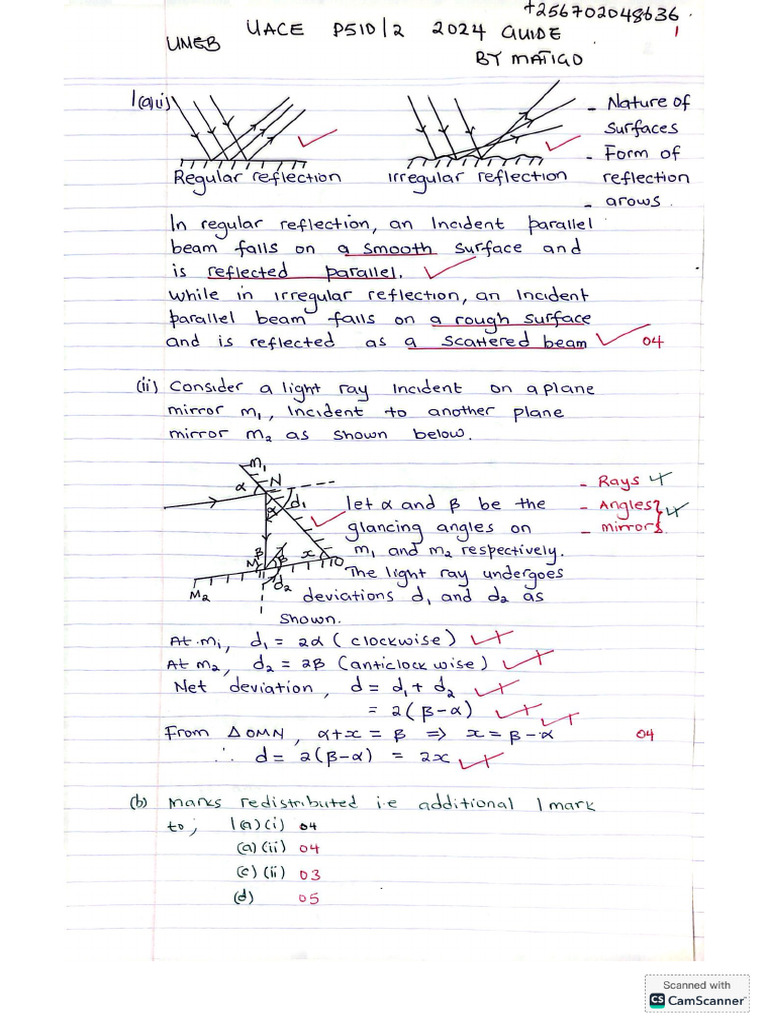 +256702048636
1
UNEB UACE P510/2 2024 GUIDE
BY MATIGO
1(a)(i)
Regular reflection
irregular reflection
- Nature of
surfaces
- Form of
reflection
- arows.
In regular reflection, an Incident parallel
beam falls on a smooth surface and
is reflected parallel.
while in irregular reflection, an Incident
parallel beam falls on a rough surface
and is reflected as a scattered beam 04
(ii) Consider a light ray incident on a plane
mirror m₁, Incident to another plane
mirror m₂ as shown below.
m₁
α N
d₁
α
β
M β x O
d₂
M₂
- Rays
- Angles
- mirrors
let α and β be the
glancing angles on
m₁ and m₂ respectively.
The light ray undergoes
deviations d₁ and d₂ as
shown.
At m₁, d₁ = 2α (clockwise)
At m₂, d₂ = 2β (anticlockwise)
Net deviation, d = d₁ + d₂
= 2(β-α)
From Δ OMN, α+x = β ⇒ x = β-α 04
∴ d = 2(β-α) = 2x
(b) marks redistributed i.e additional 1 mark
to; 1(a)(i) 04
(a)(ii) 04
(c)(ii) 03
(d) 05
Scanned with
CS CamScanner